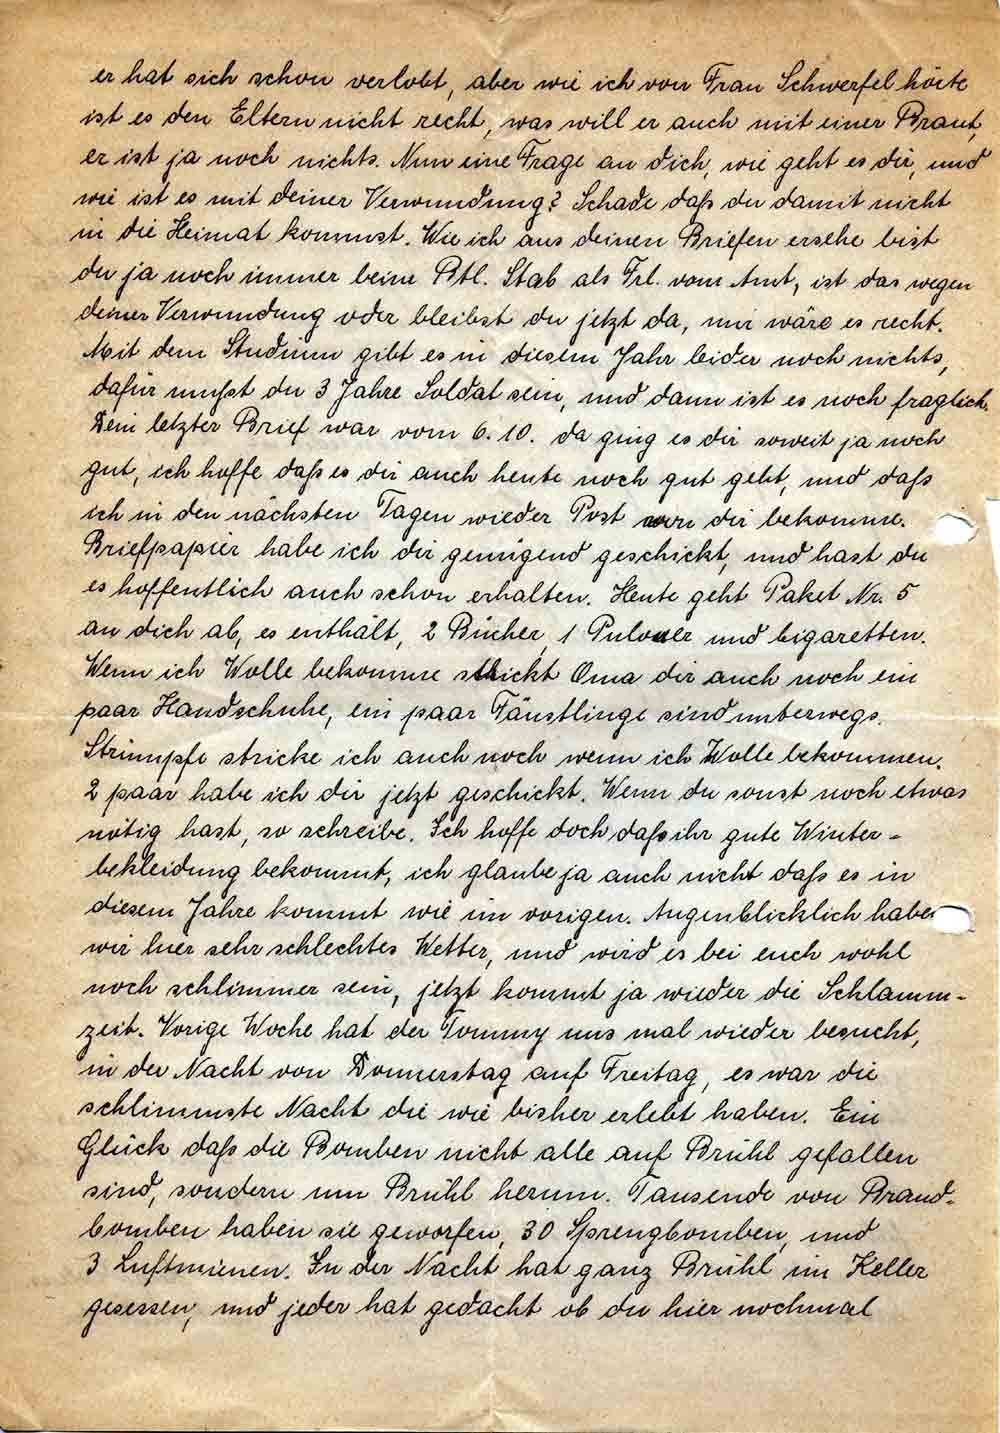 er hat sich schon verlobt, aber wie ich von Frau Schwerfel hörte
ist es den Eltern nicht recht, was will er auch mit einer Braut,
er ist ja noch nichts. Nun eine Frage an dich, wie geht es dir, und
wie ist es mit deiner Verwundung? Schade daß du damit nicht
in die Heimat kommst. Wie ich aus deinen Briefen ersehe bist
du ja noch immer beim Btl. Stab als Frl. vom Amt, ist das wegen
deiner Verwundung oder bleibst du jetzt da, mir wäre es recht.
Mit dem Studium gibt es in diesem Jahr leider noch nichts,
dafür mußt du 3 Jahre Soldat sein, und dann ist es noch fraglich.
Dein letzter Brief war vom 6.10. da ging es dir soweit ja noch
gut, ich hoffe daß es dir auch heute noch gut geht, und daß
ich in den nächsten Tagen wieder Post von dir bekomme.
Briefpapier habe ich dir genügend geschickt, und hast du
es hoffentlich auch schon erhalten. Heute geht Paket Nr. 5
an dich ab, es enthält, 2 Bücher, 1 Pulover und Cigaretten.
Wenn ich Wolle bekomme strickt Oma dir auch noch ein
paar Handschuhe, ein paar Fäustlinge sind unterwegs.
Strümpfe stricke ich auch noch wenn ich Wolle bekommen.
2 paar habe ich dir jetzt geschickt. Wenn du sonst noch etwas
nötig hast, so schreibe. Ich hoffe doch daß ihr gute Winter-
bekleidung bekommt, ich glaube ja auch nicht daß es in
diesem Jahre kommt wie im vorigen. Augenblicklich haben
wir hier sehr schlechtes Wetter, und wird es bei euch wohl
noch schlimmer sein, jetzt kommt ja wieder die Schlamm-
zeit. Vorige Woche hat der Tommy uns mal wieder besucht,
in der Nacht von Donnerstag auf Freitag, es war die
schlimmste Nacht die wie bisher erlebt haben. Ein
Glück daß die Bomben nicht alle auf Brühl gefallen
sind, sondern um Brühl herum. Tausende von Brand-
bomben haben sie geworfen, 30 Sprengbomben, und
3 Luftmienen. In der Nacht hat ganz Brühl im Keller
gesessen, und jeder hat gedacht ob du hier nochmal